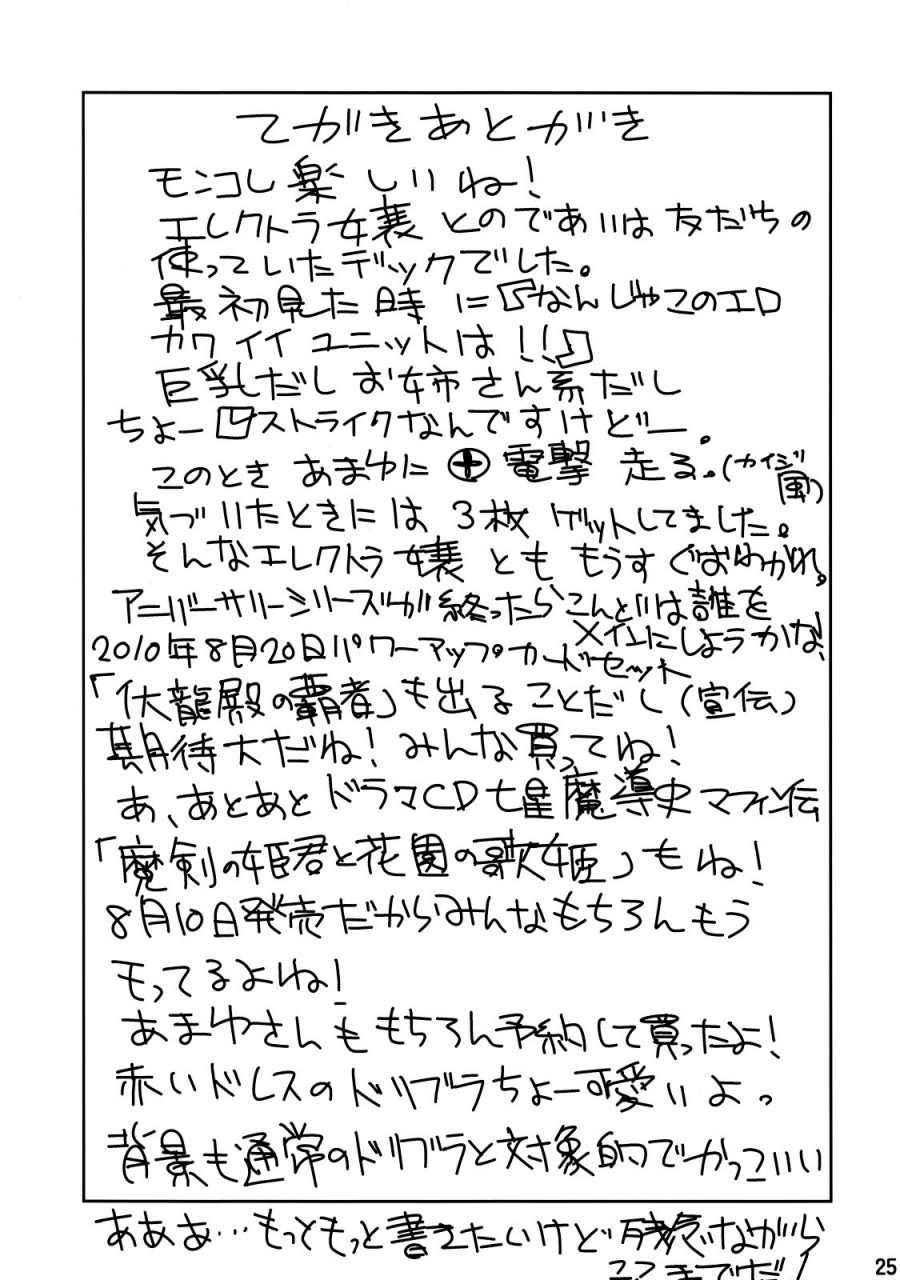 てがきあとがき
モンコレ楽しいね!
エレクトラ女嬢とのであいは友だちの
使っていたデックでした。
最初見た時に「なんじゃこのエロ
カワイイユニットは!!」
巨乳だしお姉さん系だし
ちょーどストライクなんですけどー。
このときあまゆに 電撃走る。(カイジ風)
気づいたときには3枚ゲットしてました。
そんなエレクトラ嬢とももうすぐおわかれ。
アニバーサリーシリーズが終ったらこんどは誰を
メインにしようかな!
2010年8月20日パワーアップカードセット
「伏龍殿の覇者」も出ることだし(宣伝)
期待大だね!みんな買ってね!
あ、あとあとドラマCD七星魔導史マフィン伝
「魔剣の姫君と花園の歌姫」もね!
8月10日発売だからみんなもちろんもう
モってるよね!
あまゆさんももちろん予約して買ったよ!
赤いドレスのドリブラちょー可愛いよっ
背景も通常のドリブラと対象的でかっこいい
あああ…もっともっと書きたいけど残念ながら
ここまでだ!
25